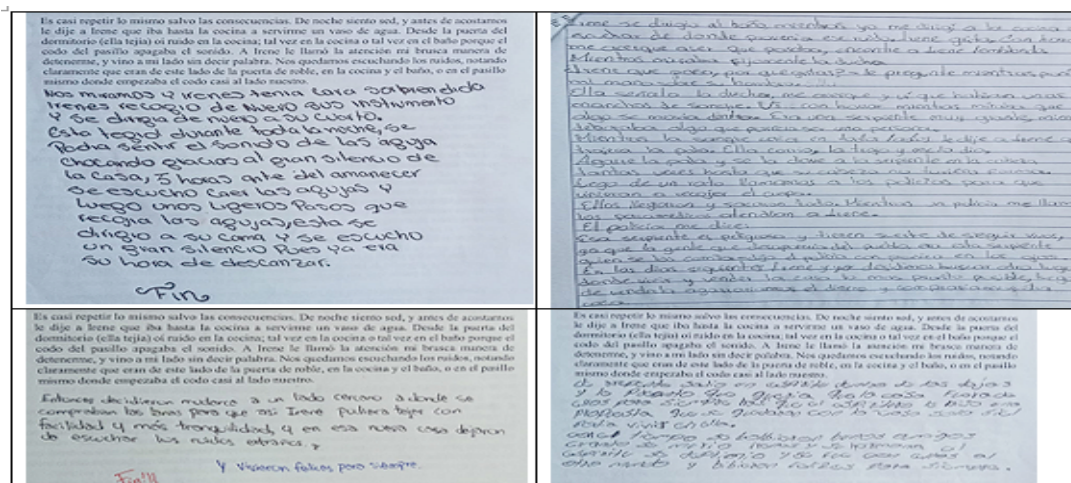 Es casi repetir lo mismo salvo las consecuencias. De noche siento sed, y antes de acostarnos
le dije a Irene que iba hasta la cocina a servirme un vaso de agua. Desde la puerta del
dormitorio (ella tejía) oí ruido en la cocina; tal vez en la cocina o tal vez en el baño porque el
codo del pasillo apagaba el sonido. A Irene le llamó la atención mi brusca manera de
detenerme, y vino a mi lado sin decir palabra. Nos quedamos escuchando los ruidos, notando
claramente que eran de este lado de la puerta de roble, en la cocina y el baño, o en el pasillo
mismo donde empezaba el codo casi al lado nuestro.
Nos miramos y irenes tenia cara sorprendida
irenes recogio de nuevo sus instrumento
y se dirgia de nuevo a su cuarto.
Esta tegio durante toda la noche, se
Podia sentir el sonido de las aguja
chocando gracias al gran silencio de
la casa, 3 horas ante del amanecer
se escucho caer las agujas y
luego unos ligeros pasos que
recogia las agujas, esta se
dirigio a su cama y se escucho
un gran silencio pues ya era
su hora de descanzar.
Fin
Irene se dirigio al baño mientras yo me dirigi a la cocina
escuchar de donde provenia ese ruido Irene grito
me acerque a ver que pasaba, encontre a Irene temblando
Mientras miraba fijamente la ducha
Irene que paso, por que gritas? le pregunte mientras
Ella señalo la ducha, me acerque y vi que habian unas
manchas de sangre. Vi con horror mientras miraba que
algo se movia dentro. Era una serpiente muy grande,
algo que parecia ser una persona.
Mientras la sangre caia le dije a Irene
trajera la pala. Ella fue, la trajo y me la dio
Agarre la pala y se la clave a la serpiente en la cabeza
tantas veces hasta que su cabeza no tuviera forma.
Luego de un rato llamamos a los policias para que
vinieran a recojer el cuerpo.
Ellos llegaron y sacaron todo. Mientras un policia me
los paramedicos atendian a Irene.
El policia me dice:
Esa serpiente es peligrosa y tienen suerte de seguir vivos,
que la gente que desaparecia del pueblo era esta serpiente
quien se los comia dijo el policia con en los ojos
En los dias siguientes Irene y yo decidimos buscar otro lugar
donde vivir y vender la casa lo mas pronto posible,
de venderla agarrariamos el dinero y comprariamos otra
casa
Es casi repetir lo mismo salvo las consecuencias. De noche siento sed, y antes de acostarnos
le dije a Irene que iba hasta la cocina a servirme un vaso de agua. Desde la puerta del
dormitorio (ella tejía) oí ruido en la cocina; tal vez en la cocina o tal vez en el baño porque el
codo del pasillo apagaba el sonido. A Irene le llamó la atención mi brusca manera de
detenerme, y vino a mi lado sin decir palabra. Nos quedamos escuchando los ruidos, notando
claramente que eran de este lado de la puerta de roble, en la cocina y el baño, o en el pasillo
mismo donde empezaba el codo casi al lado nuestro.
Entonces decidieron mudarce a un lado cercano a donde se
compraban las lanas para que asi Irene pudiera tejer con
facilidad y más tranquilidad, y en esa nueva casa dejaron
de escuchar los ruidos extraños.
y vivieron felices para siempre.
Fin!!!
Es casi repetir lo mismo salvo las consecuencias. De noche siento sed, y antes de acostarnos
le dije a Irene que iba hasta la cocina a servirme un vaso de agua. Desde la puerta del
dormitorio (ella tejía) oí ruido en la cocina; tal vez en la cocina o tal vez en el baño porque el
codo del pasillo apagaba el sonido. A Irene le llamó la atención mi brusca manera de
detenerme, y vino a mi lado sin decir palabra. Nos quedamos escuchando los ruidos, notando
claramente que eran de este lado de la puerta de roble, en la cocina y el baño, o en el pasillo
mismo donde empezaba el codo casi al lado nuestro.
salio un espiritu dentro de
y la que la casa
para siempre
propuesta que se quedaran con la casa
para vivir en ella.
el tiempo se hicieron buenos amigos
cuando se murio Irene y su hermano el
espiritu se y se fue con ellos al
otro mundo y vivieron felices para siempre.